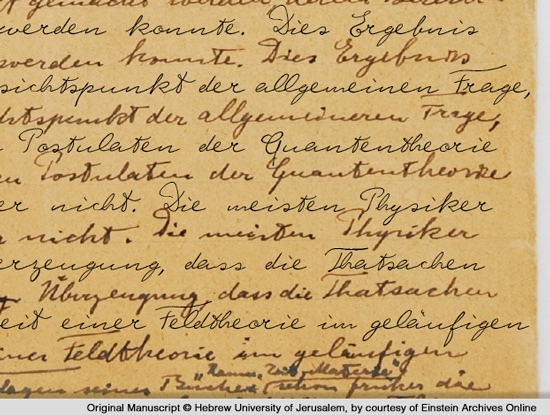 werden konnte. Dies Ergebnis
werden konnte. Dies Ergebnis
sichtspunkt der allgemeinen Frage,
htspunkt der allgemeineren Frage,
Postulaten der Quantentheorie
en Postulaten der Quantentheorie
er nicht. Die meisten Physiker
r nicht. Die meisten Physiker
erzeugung, dass die Thatsachen
Überzeugung, dass die Thatsachen
eit einer Feldtheorie im geläufigen
iner Feldtheorie im geläufigen
"Raum, Zeit, Materie"
seines Buches schon früher die
Original Manuscript © Hebrew University of Jerusalem, by courtesy of Einstein Archives Online